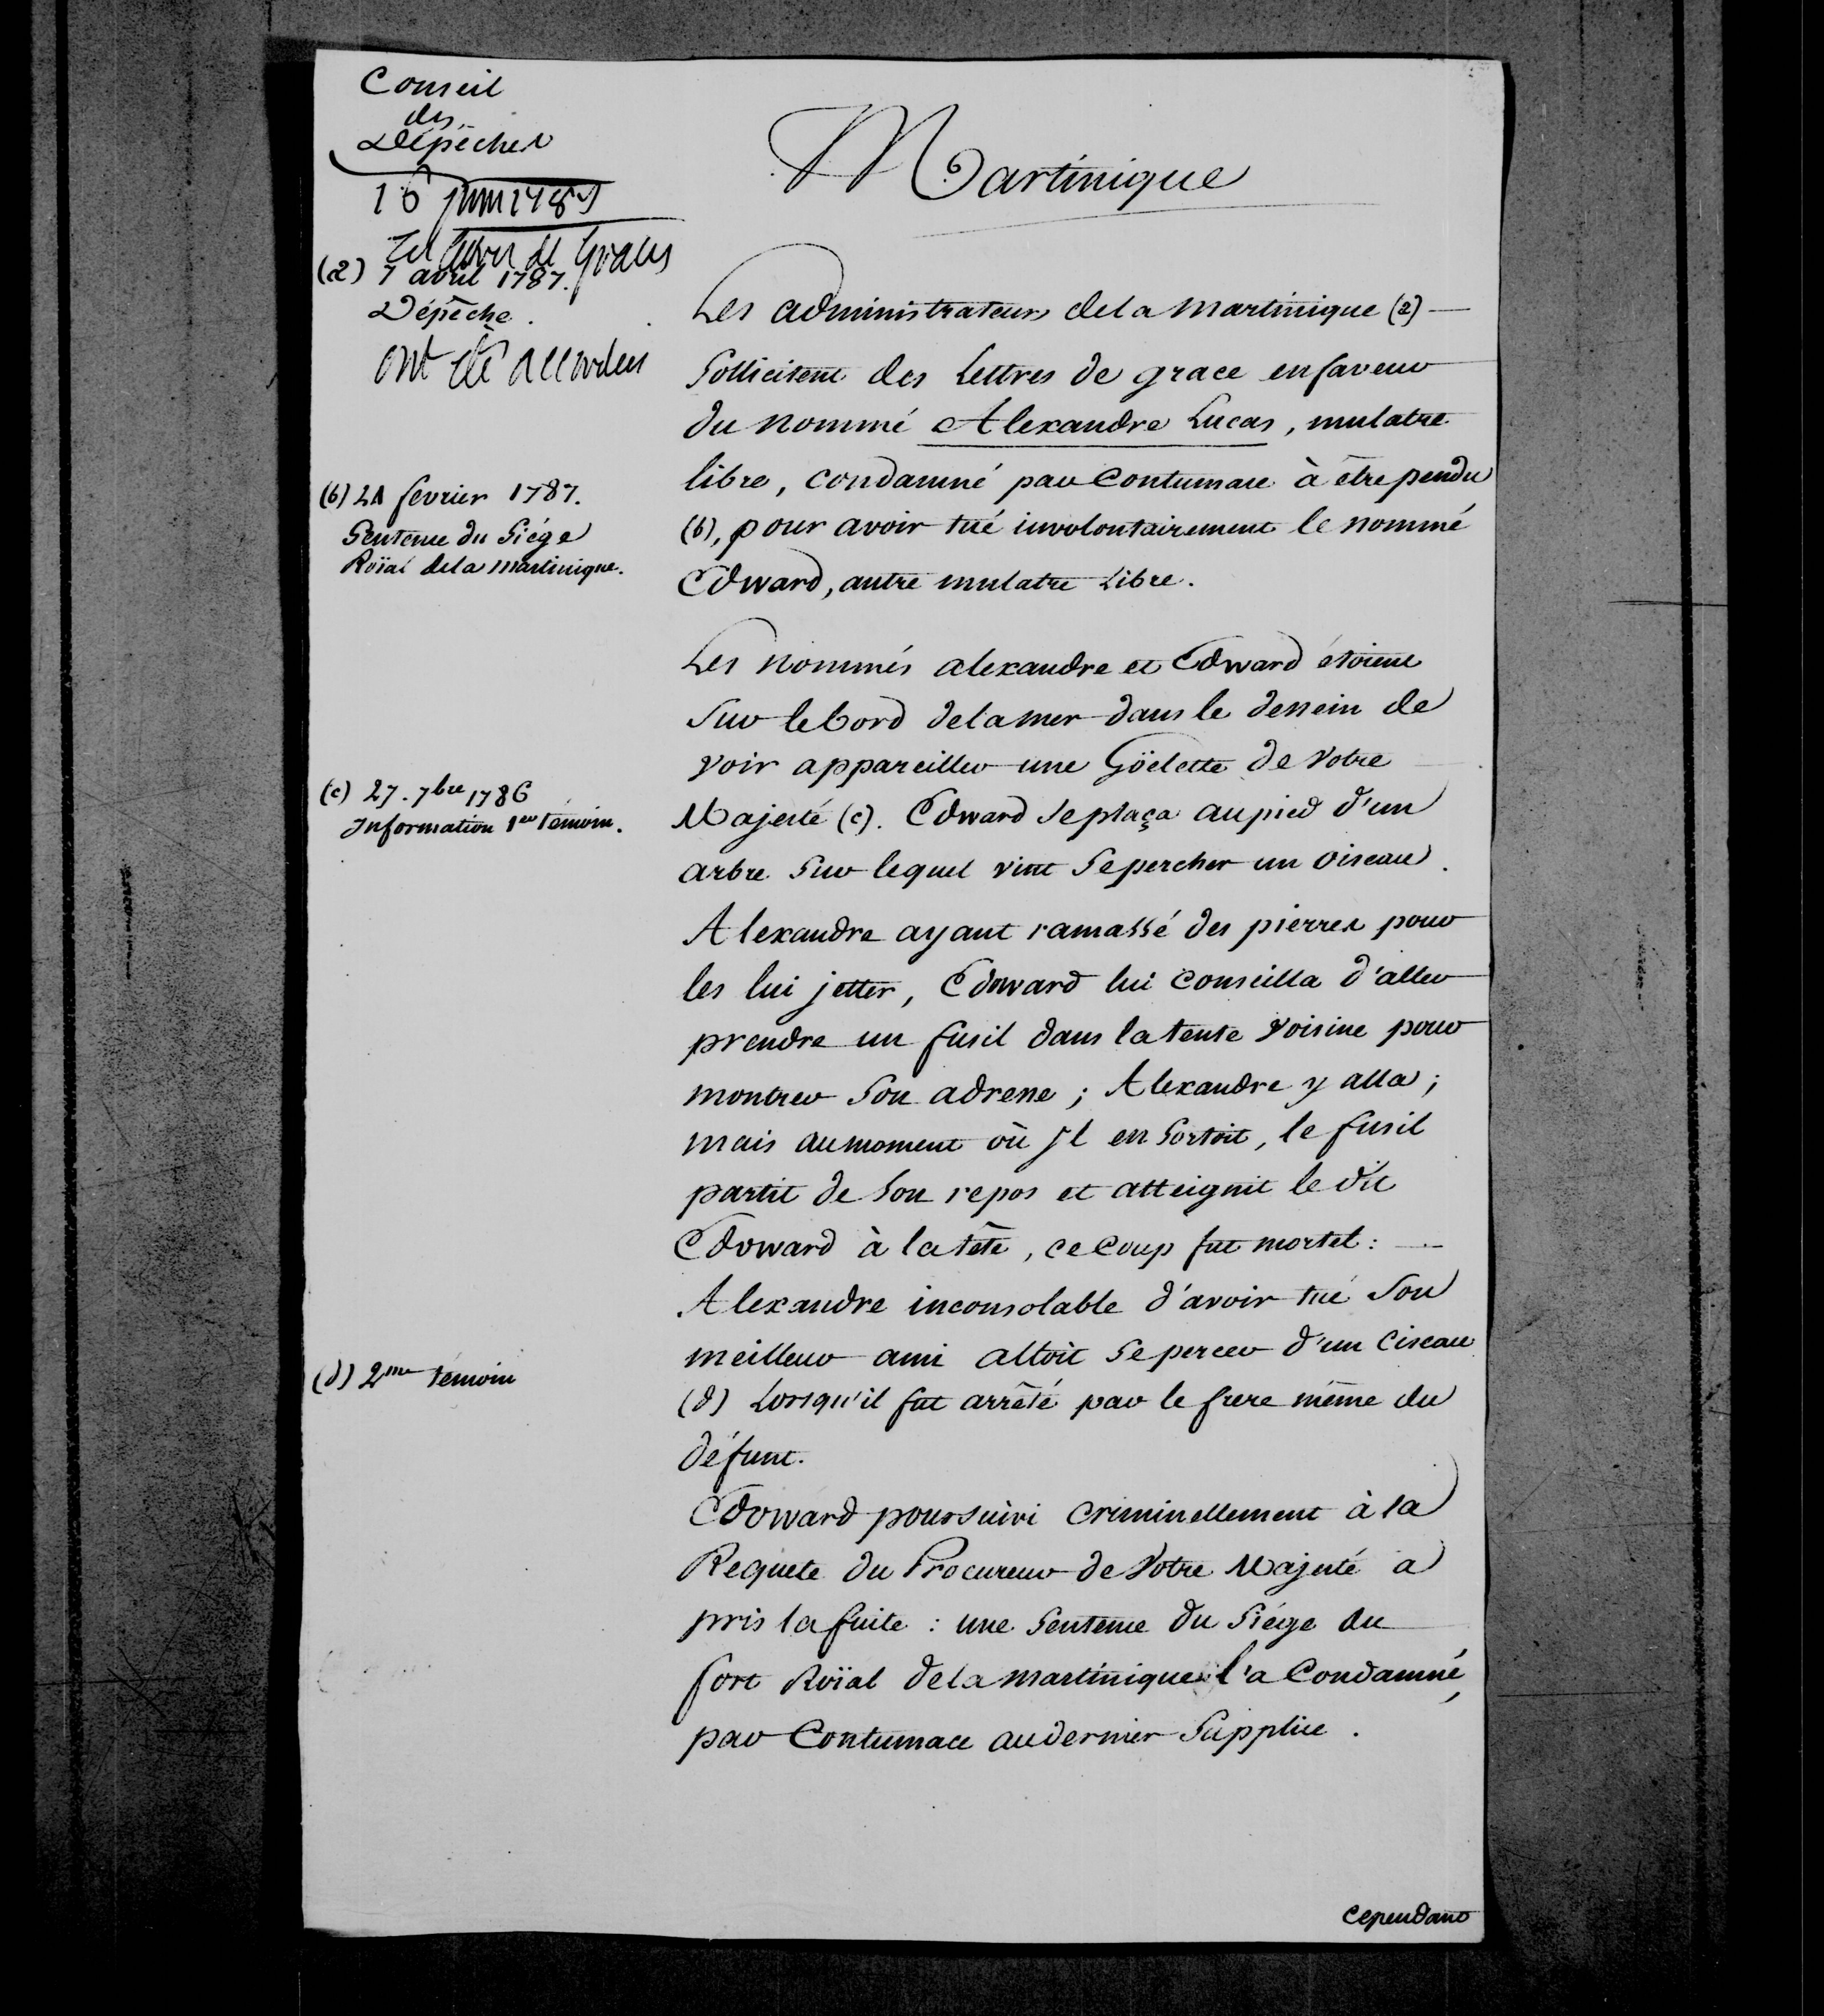 Conseil
des
Dépêches
16 juin 1787
Les lettres de graces
(a) 7 avril 1787.
Dépêche.
ont été accordées
(b) 21 fevrier 1787.
Sentence du Siége
Roïal de la martinique.
(c) 27. 7bre 1786
Information 1er témoin.
(d) 2me témoin
Martinique
Les administrateurs de la martinique (a) —
Sollicitent des Lettres de grace en faveur
du nommé Alexandre Lucas, mulatre
libre, condamné par Contumace à être pendu
(b), pour avoir tué involontairement le nommé
Edward, autre mulatre Libre.
Les nommés alexandre et Edward étoient
Sur le bord de la mer dans le dessein de
voir appareiller une Göelette de Votre
Majesté (c). Edward se plaça au pied d'un
arbre Sur lequel vint Se percher un oiseau.
Alexandre ayant ramassé des pierres pour
les lui jetter, Edoward lui conseilla d'aller
prendre un fusil dans la tente voisine pour
montrer Son adresse ; Alexandre y alla ;
mais au moment où Il en Sortoit, le fusil
partit de Son repos et atteignit le dit
Edoward à la tête, ce coup fut mortel : —
Alexandre inconsolable d'avoir tué Son
meilleur ami alloit Se percer d'un Ciseau
(d) Lorsqu'il fut arrêté par le frere même du
défunt.
Edoward poursuivi criminellement à la
Requete du Procureur de Votre Majesté a
pris la fuite : une Sentence du Siége du
fort Roïal de la martinique l'a Condamné,
par Contumace au dernier Supplice.
Cependant